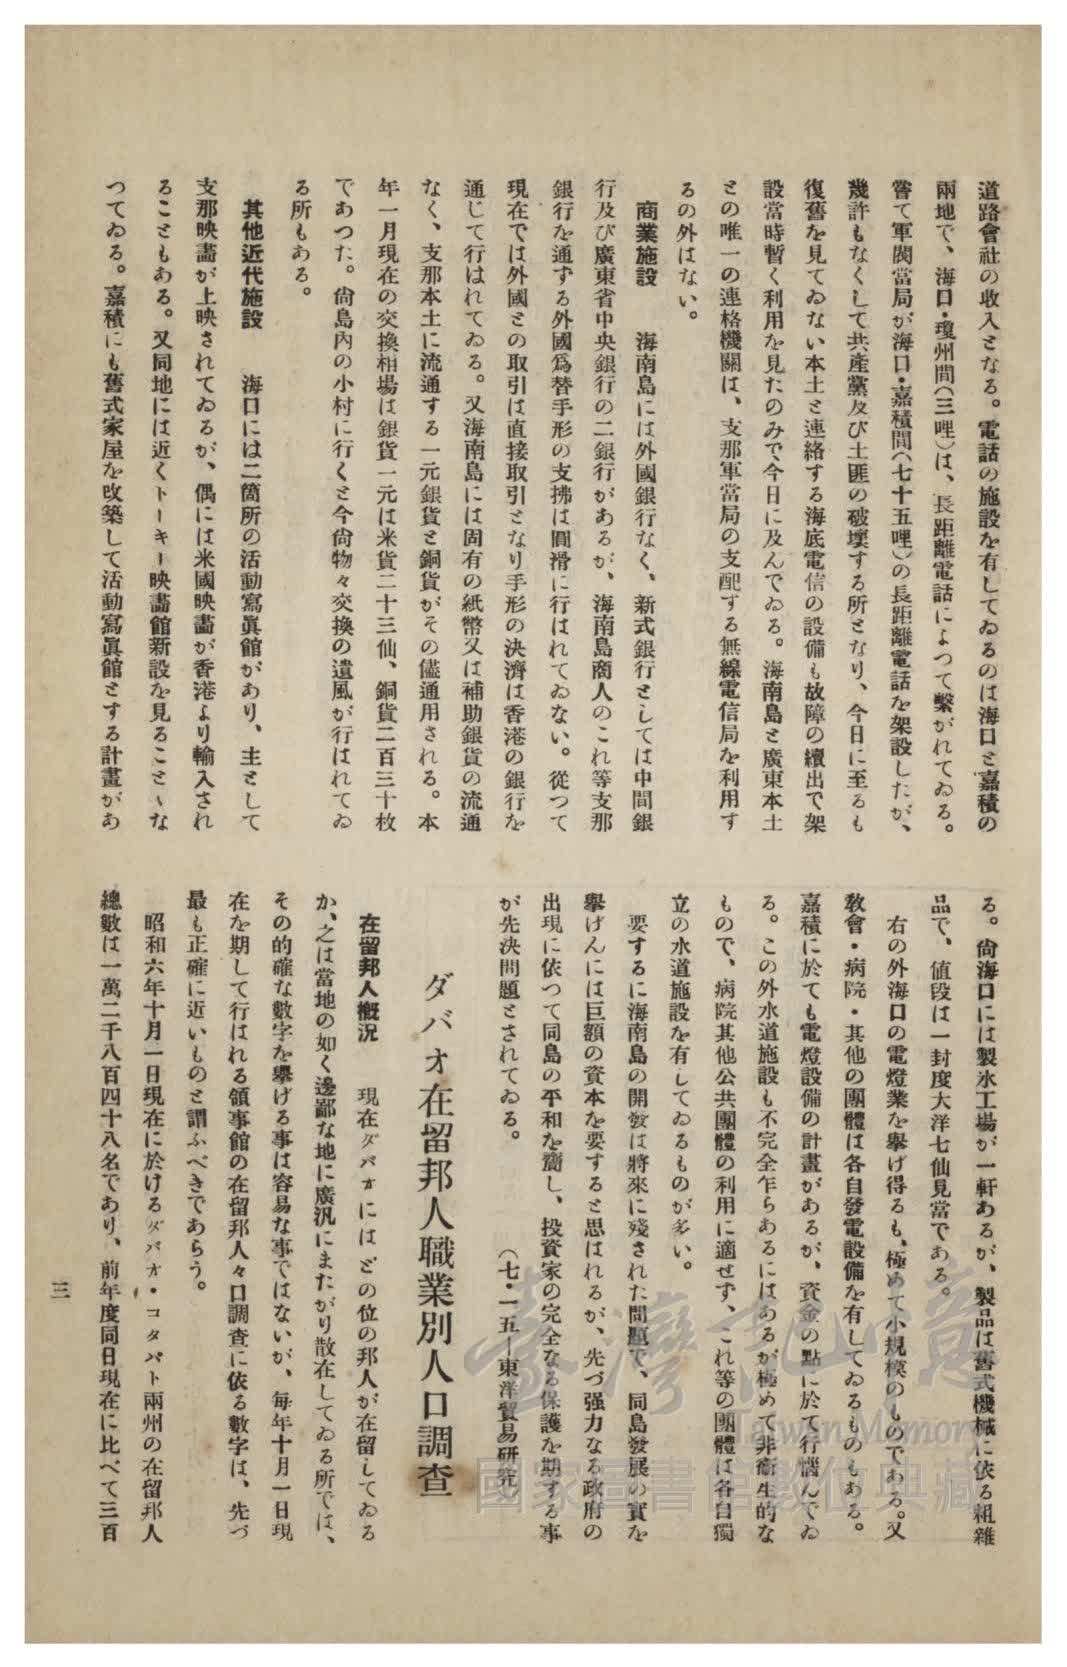 道路會社の收入となる。電話の施設を有してゐるのは海口と嘉積の
兩地で、海口・瓊州間(三哩)は、長距離電話によつて繫がれてゐる。
嘗て軍閥當局が海口・嘉積間(七十五哩)の長距離電話を架設したが、
幾許もなくして共產黨及び土匪の破壞する所となり、今日に至るも
復舊を見てゐない本土と連絡する海底電信の設備も故障の續出で架
設當時暫く利用を見たのみで今日に及んでゐる。海南島と廣東本土
との唯一の連格機關は、支那軍當局の支配する無線電信局を利用す
るの外はない。
商業施設 海南島には外國銀行なく、新式銀行としては中間銀
行及び廣東省中央銀行の二銀行があるが、海南島商人のこれ等支那
銀行を通ずる外國爲替手形の支拂は圓滑に行はれてゐない。從つて
現在では外國との取引は直接取引となり手形の決濟は香港の銀行を
通じて行はれてゐる。又海南島には固有の紙幣又は補助銀貨の流通
なく、支那本土に流通する一元銀貨と銅貨がその儘通用される。本
年一月現在の交換相場は銀貨一元は米貨二十三仙、銅貨二百三十枚
であつた。尙島內の小村に行くと今尙物々交換の遺風が行はれてゐ
る所もある。
其他近代施設 海口には二箇所の活動寫眞館があり、主として
支那映畵が上映されてゐるが、偶には米國映畵が香港より輸入され
ることもある。又同地には近くトーキー映畵館新設を見ることゝな
つてゐる。嘉積にも舊式家屋を改築して活動寫眞館とする計畫があ
る。尙海口には製氷工場が一軒あるが、製品は舊式機械に依る粗雜
品で、値段は一封度大洋七仙見當である。
右の外海口の電燈業を擧げ得るも、極めて小規模のものである。又
敎會・病院・其他の團體は各自發電設備を有してゐるものもある。
嘉積に於ても電燈設備の計畫があるが、資金の點に於て行惱んでゐ
る。この外水道施設も不完全乍らあるにはあるが極めて非衞生的な
もので、病院其他公共團體の利用に適せず、これ等の團體は各自獨
立の水道施設を有してゐるものが多い。
要するに海南島の開發は將來に殘された問題で、同島發展の實を
擧げんには巨額の資本を要すると思はれるが、先づ强力なる政府の
出現に依つて同島の平和を齎し、投資家の完全なる保護を期する事
が先決問題とされてゐる。 (七・一五—東洋貿易硏究)
ダバオ在留邦人職業別人口調查
在留邦人槪況 現在ダバオにはどの位の邦人が在留してゐる
か、之は當地の如く邊鄙な地に廣汎にまたがり散在してゐる所では、
その的確な數字を擧げる事は容易な事ではないが、每年十月一日現
在を期して行はれる領事館の在留邦人々口調查に依る數字は、先づ
最も正確に近いものと謂ふべきであらう。
昭和六年十月一日現在に於けるダバオ・コタバト兩州の在留邦人
總數は一萬二千八百四十八名であり、前年度同日現在に比べて三百
三
臺灣記憶
Taiwan Memory
國家圖書館數位典藏